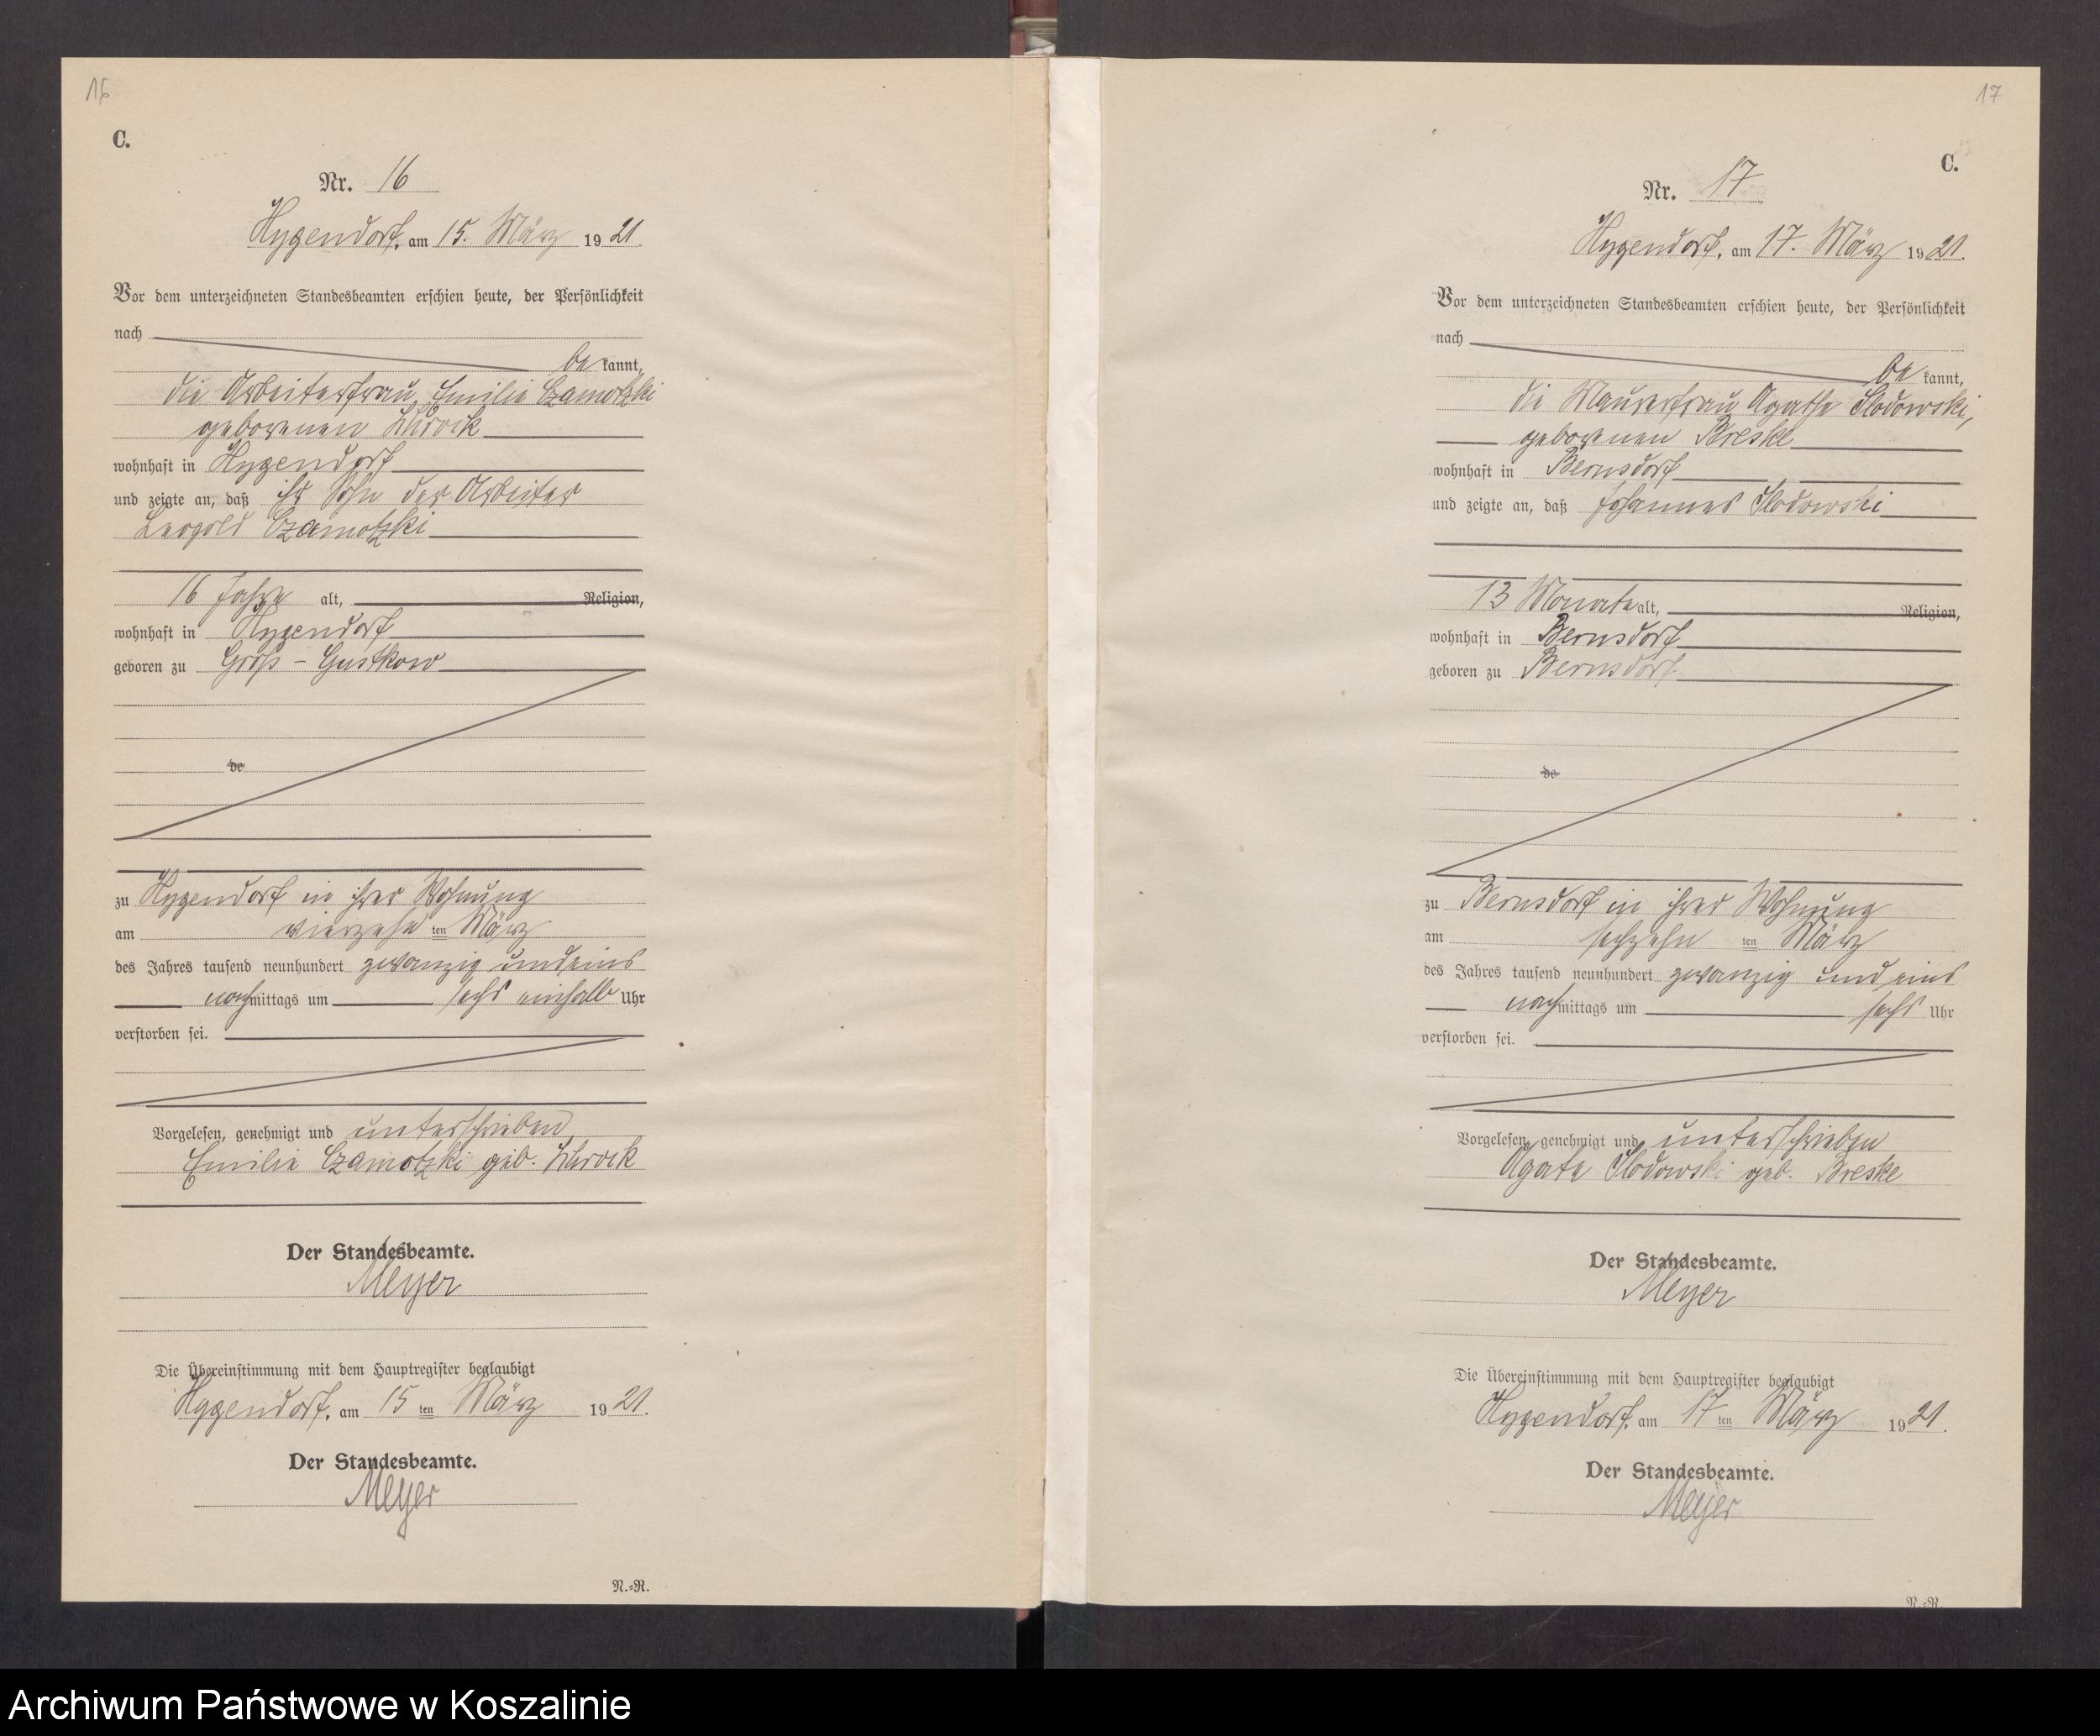 16
C.
Nr. 16
Hygendorf, am 15. März 1921.
Vor dem unterzeichneten Standesbeamten erschien heute, der Persönlichkeit
nach
be kannt,
die Arbeiterfrau Emilie Czamotzki
geborenen
wohnhaft in Hygendorf
und zeigte an, daß ihr Sohn der Arbeiter
Leopold Czamotzki
16 Jahre alt, Religion,
wohnhaft in Hygendorf
geboren zu Groß-Gustkow
de
zu Hygendorf in ihrer Wohnung
am vierzehn ten März
des Jahres tausend neunhundert zwanzig und eins
nachmittags um sechs einhalb Uhr
verstorben sei.
Vorgelesen, genehmigt und unterschrieben
Emilie Czamotzki geb.
Der Standesbeamte.
Meyer
Die Übereinstimmung mit dem Hauptregister beglaubigt
Hygendorf, am 15 ten März 1921.
Der Standesbeamte.
Meyer
N.=R.
17
C.
Nr. 17
Hygendorf, am 17. März 1921.
Vor dem unterzeichneten Standesbeamten erschien heute, der Persönlichkeit
nach
be kannt,
die Maurerfrau Agathe Slodowski,
geborenen Breske
wohnhaft in Bernsdorf
und zeigte an, daß Johannes Slodowski
13 Monate alt, Religion,
wohnhaft in Bernsdorf
geboren zu Bernsdorf
de
zu Bernsdorf in ihrer Wohnung
am sechzehn ten März
des Jahres tausend neunhundert zwanzig und eins
nachmittags um sechs Uhr
verstorben sei.
Vorgelesen, genehmigt und unterschrieben
Agate Slodowski geb. Breske
Der Standesbeamte.
Meyer
Die Übereinstimmung mit dem Hauptregister beglaubigt
Hygendorf, am 17 ten März 1921.
Der Standesbeamte.
Meyer
N.=R.
Archiwum Państwowe w Koszalinie